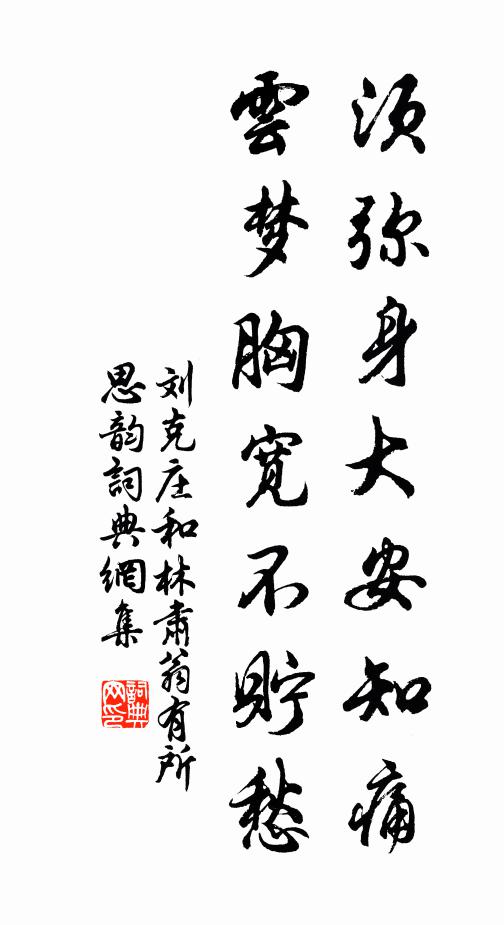 须弥身大安知痛
雲梦胸宽不貯愁
刘克庄和林肃翁有所
思韵詞典網集
詞典网印